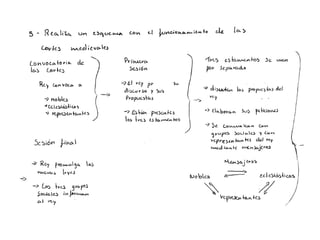 3 - Realiza un esquema con el funcionamiento de las
cortes medievales
Convocatoria de
las Cortes
Rey convoca a
→ nobles
→ eclesiásticos
→ representantes
Primera
Sesión
→ El rey da su
discurso y sus
Propuestas
→ Están presentes
los tres estamentos
Tres estamentos se unen
por separado
→ discuten las propuestas del
rey
→ Elaboran sus peticiones
→ Se comunican con
grupos sociales y con
representantes del rey
mediante mensajeros
Mensajeros
Nobles
eclesiásticos
representantes
Sesión final
→ Rey promulga las
nuevas leyes
→ Los tres grupos
sociales informan
al rey